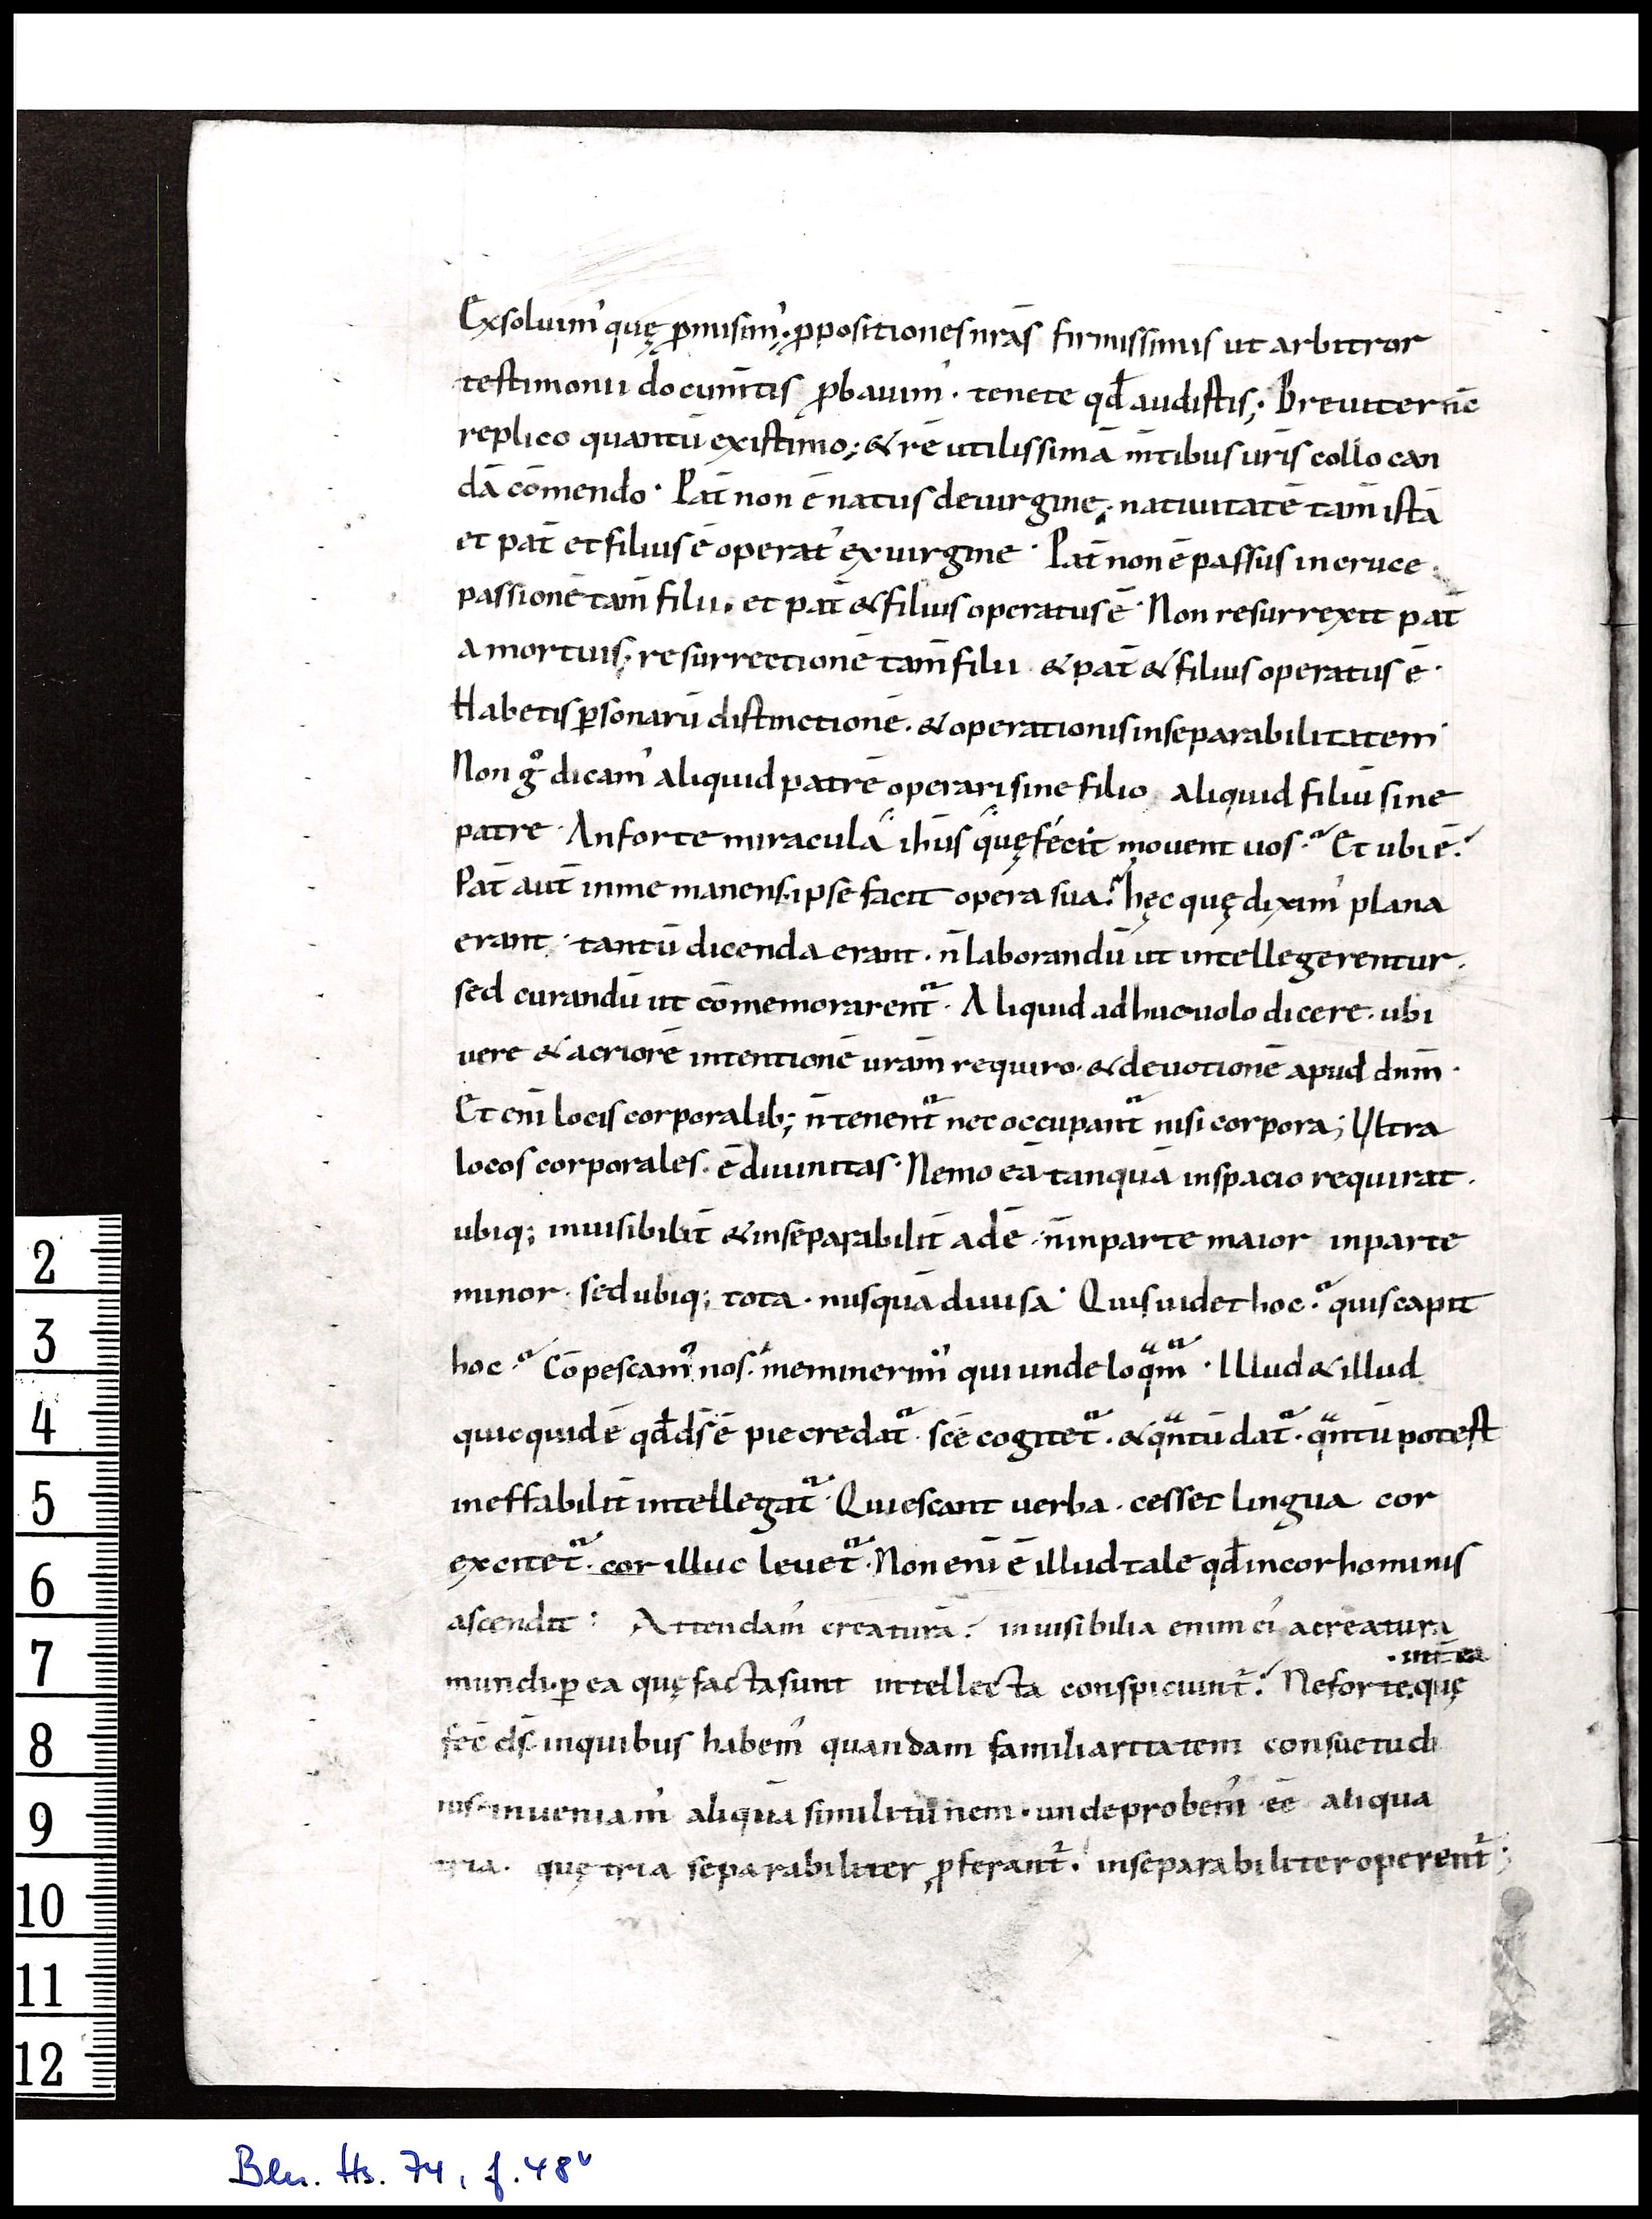 Exsoluim' quę ꝓmisim'. ꝓpositiones nr̄as firmissimis ut arbitror
testimonii docum̄tis ꝓbauim'. tenete qđ audistis; Breuiter nc̄
replico quantū existimo; & rē utilissimā m̄tibus ur̄is collocan
dā cōmendo. Pat̄ non ē natus deuirgine; natiuitatē tam̄ istā
et pat̄ et filius ē operat' exuirgine. Pat̄ non ē passus incruce.
passionē tam̄ filii. et pat̄ & filius operatus ē. Non resurrexit pat̄
amortuis; resurrectionē tam̄ filii & pat̄ & filius operatus ē.
Habetis ꝑsonarū distinctionē. & operationis inseparabilitatem
Non gͦ dicam' aliquid patrē operari sine filio aliquid filiū sine
patre. An forte miracula ih̄us quę fecit mouent uos? Et ubi ē?
Pat̄ aut̄ inme manens. ipse facit opera sua? hęc quę dixim' plana
erant. tantū dicenda erant. n̄ laborandū ut intellegerentur.
sed curandū ut cōmemorarent̄. Aliquid adhuc uolo dicere. ubi
uere & acriorē intentionē ur̄am requiro. & deuotionē apud dn̄m.
Et eni locis corporalib; n̄ tenent̄ nec occupant̄ nisi corpora; Ultra
locos corporales. ē diuinitas. Nemo eā tanquā inspacio requirat.
ubiq; inuisibilit̄ & inseparabilit̄ adē. n̄ inparte maior inparte
minor. sed ubiq; tota. nusquā diuisa. Quis uidet hoc? quis capit
hoc? Cōpescam' nos. meminerim' qui unde loqm̄. Illud & illud
quicquid ē qđ ds̄ ē pie credat̄. sc̄e cogitet̄. & qntū dat̄. qntū potest
ineffabilit̄ intellegat̄. Quiescant uerba. cesset lingua cor
excitet̄. cor illuc leuet̄. Non eni ē illud tale qđ incor hominis
ascendit: Attendam' creaturā. inuisibilia enim ei' acreatura
mundi. ꝑ ea quę facta sunt intellecta conspiciunt̄. Ne forte. quę
.int̄ ea
fec̄ ds̄. inquibus habem' quandam familiaritatem consuetudi
nis. inueniam' aliquā similitūnem. unde probem' ee̅ aliqua
tria. quę tria separabiliter ꝓferant̄. inseparabiliter operent̄;
2
3
4
5
6
7
8
9
10
11
12
Bln. Hs. 74, f. 48v